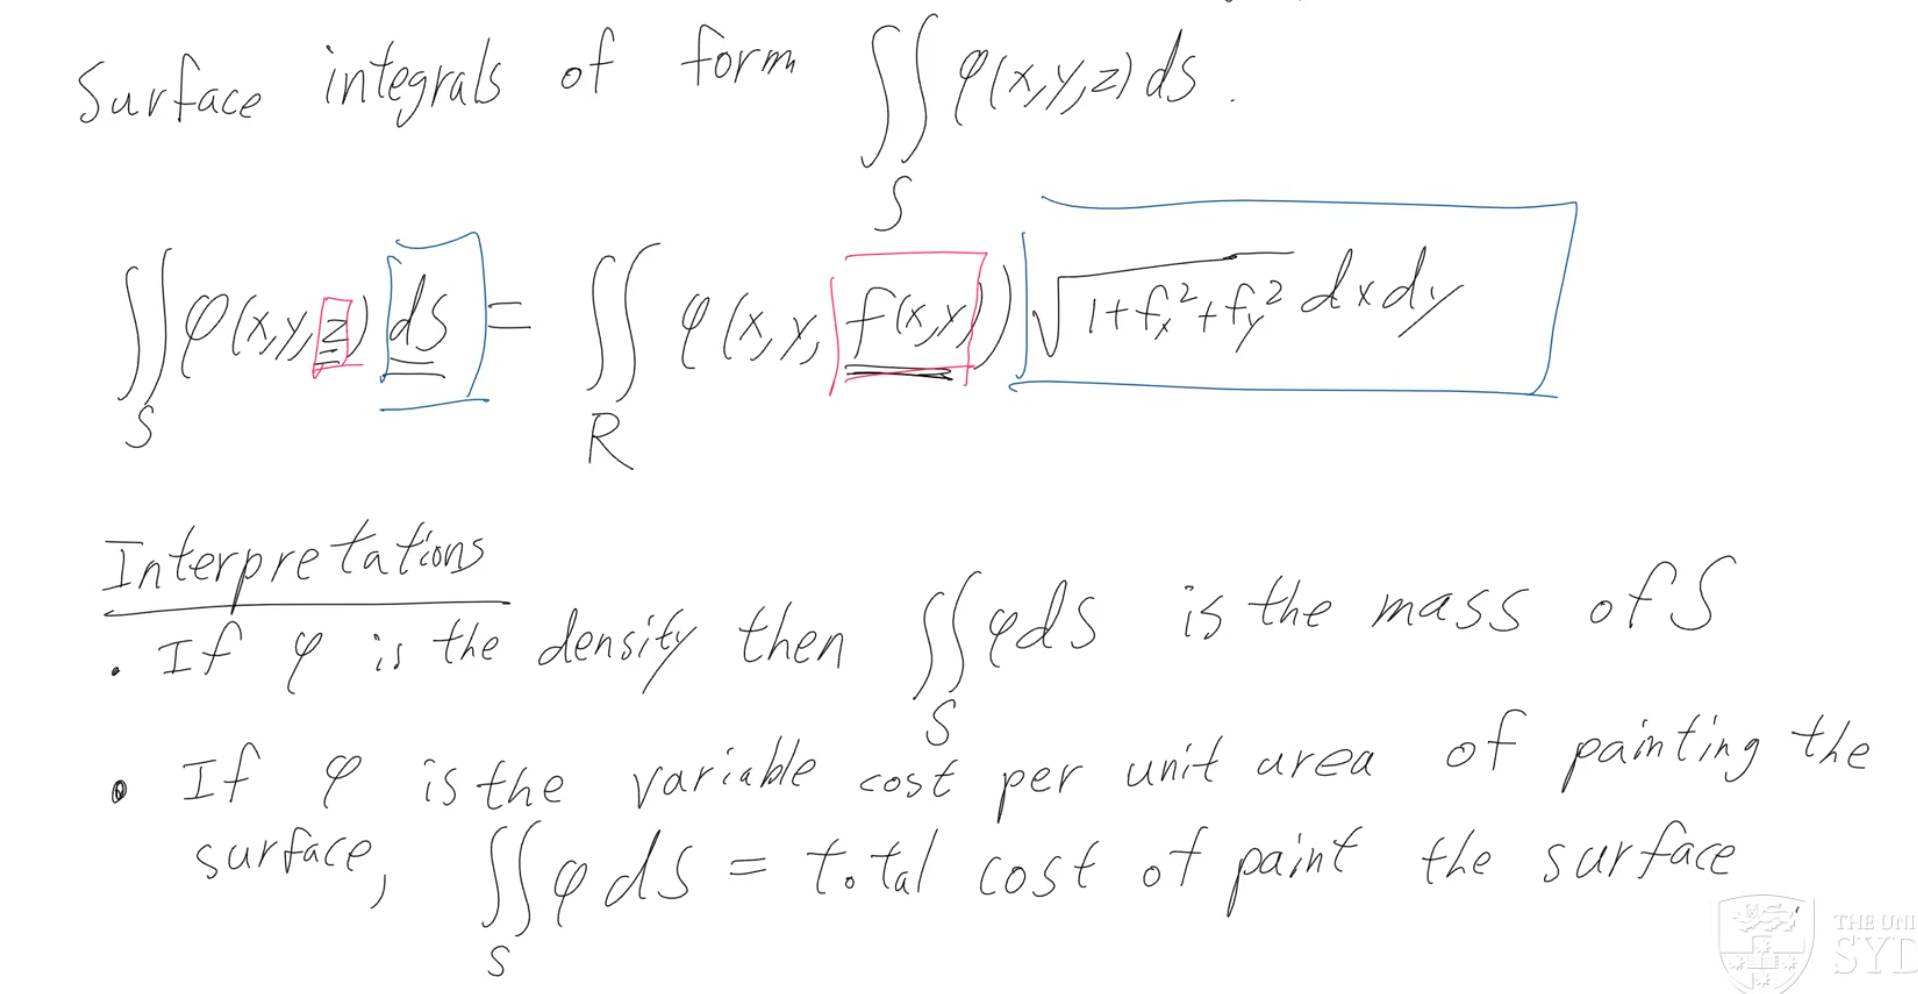 Surface integrals of form ∬_S φ(x,y,z) dS.
∬_S φ(x,y,z) dS = ∬_R φ(x,y,f(x,y)) √(1+f_x²+f_y²) dx dy
Interpretations
. If φ is the density then ∬_S φ dS is the mass of S
• If φ is the variable cost per unit area of painting the
surface, ∬_S φ dS = total cost of paint the surface
THE UNI
SYD